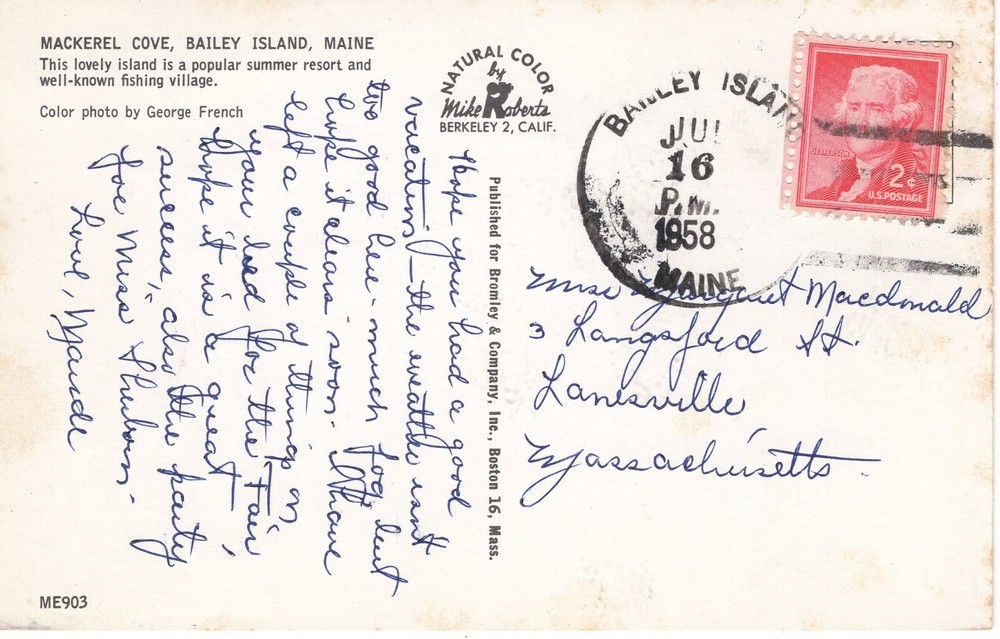 MACKEREL COVE, BAILEY ISLAND, MAINE
This lovely island is a popular summer resort and
well-known fishing village.
Color photo by George French
NATURAL COLOR
by
Mike Roberts
BERKELEY 2, CALIF.
BAILEY ISLAND
JUL
16
P.M.
1958
MAINE
JEFFERSON
2¢
U.S. POSTAGE
Hope you had a good
vacation - the weather isn't
too good here - much fog but
hope it clears soon. I have
left a couple of things on
your bed for the Fair,
hope it is a great
success, also the party
for Miss Sherborn.
Love, Maude
Published for Bromley & Company, Inc., Boston 16, Mass.
Miss Margaret Macdonald
3 Langsford St.
Lanesville
Massachusetts
ME903